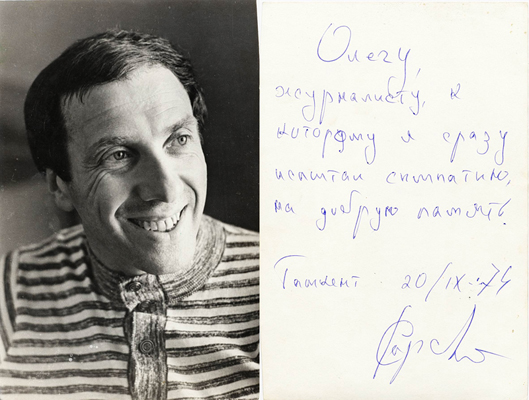 Олегу,
журналисту, к
которому я сразу
испытал симпатию,
на добрую память.
Ташкент 20/IX-74